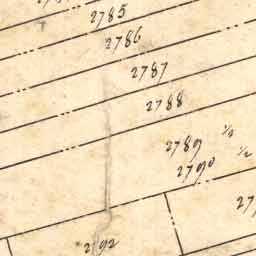 2785
2786
2787
2788
2789 1/4
2790 1/2
2792